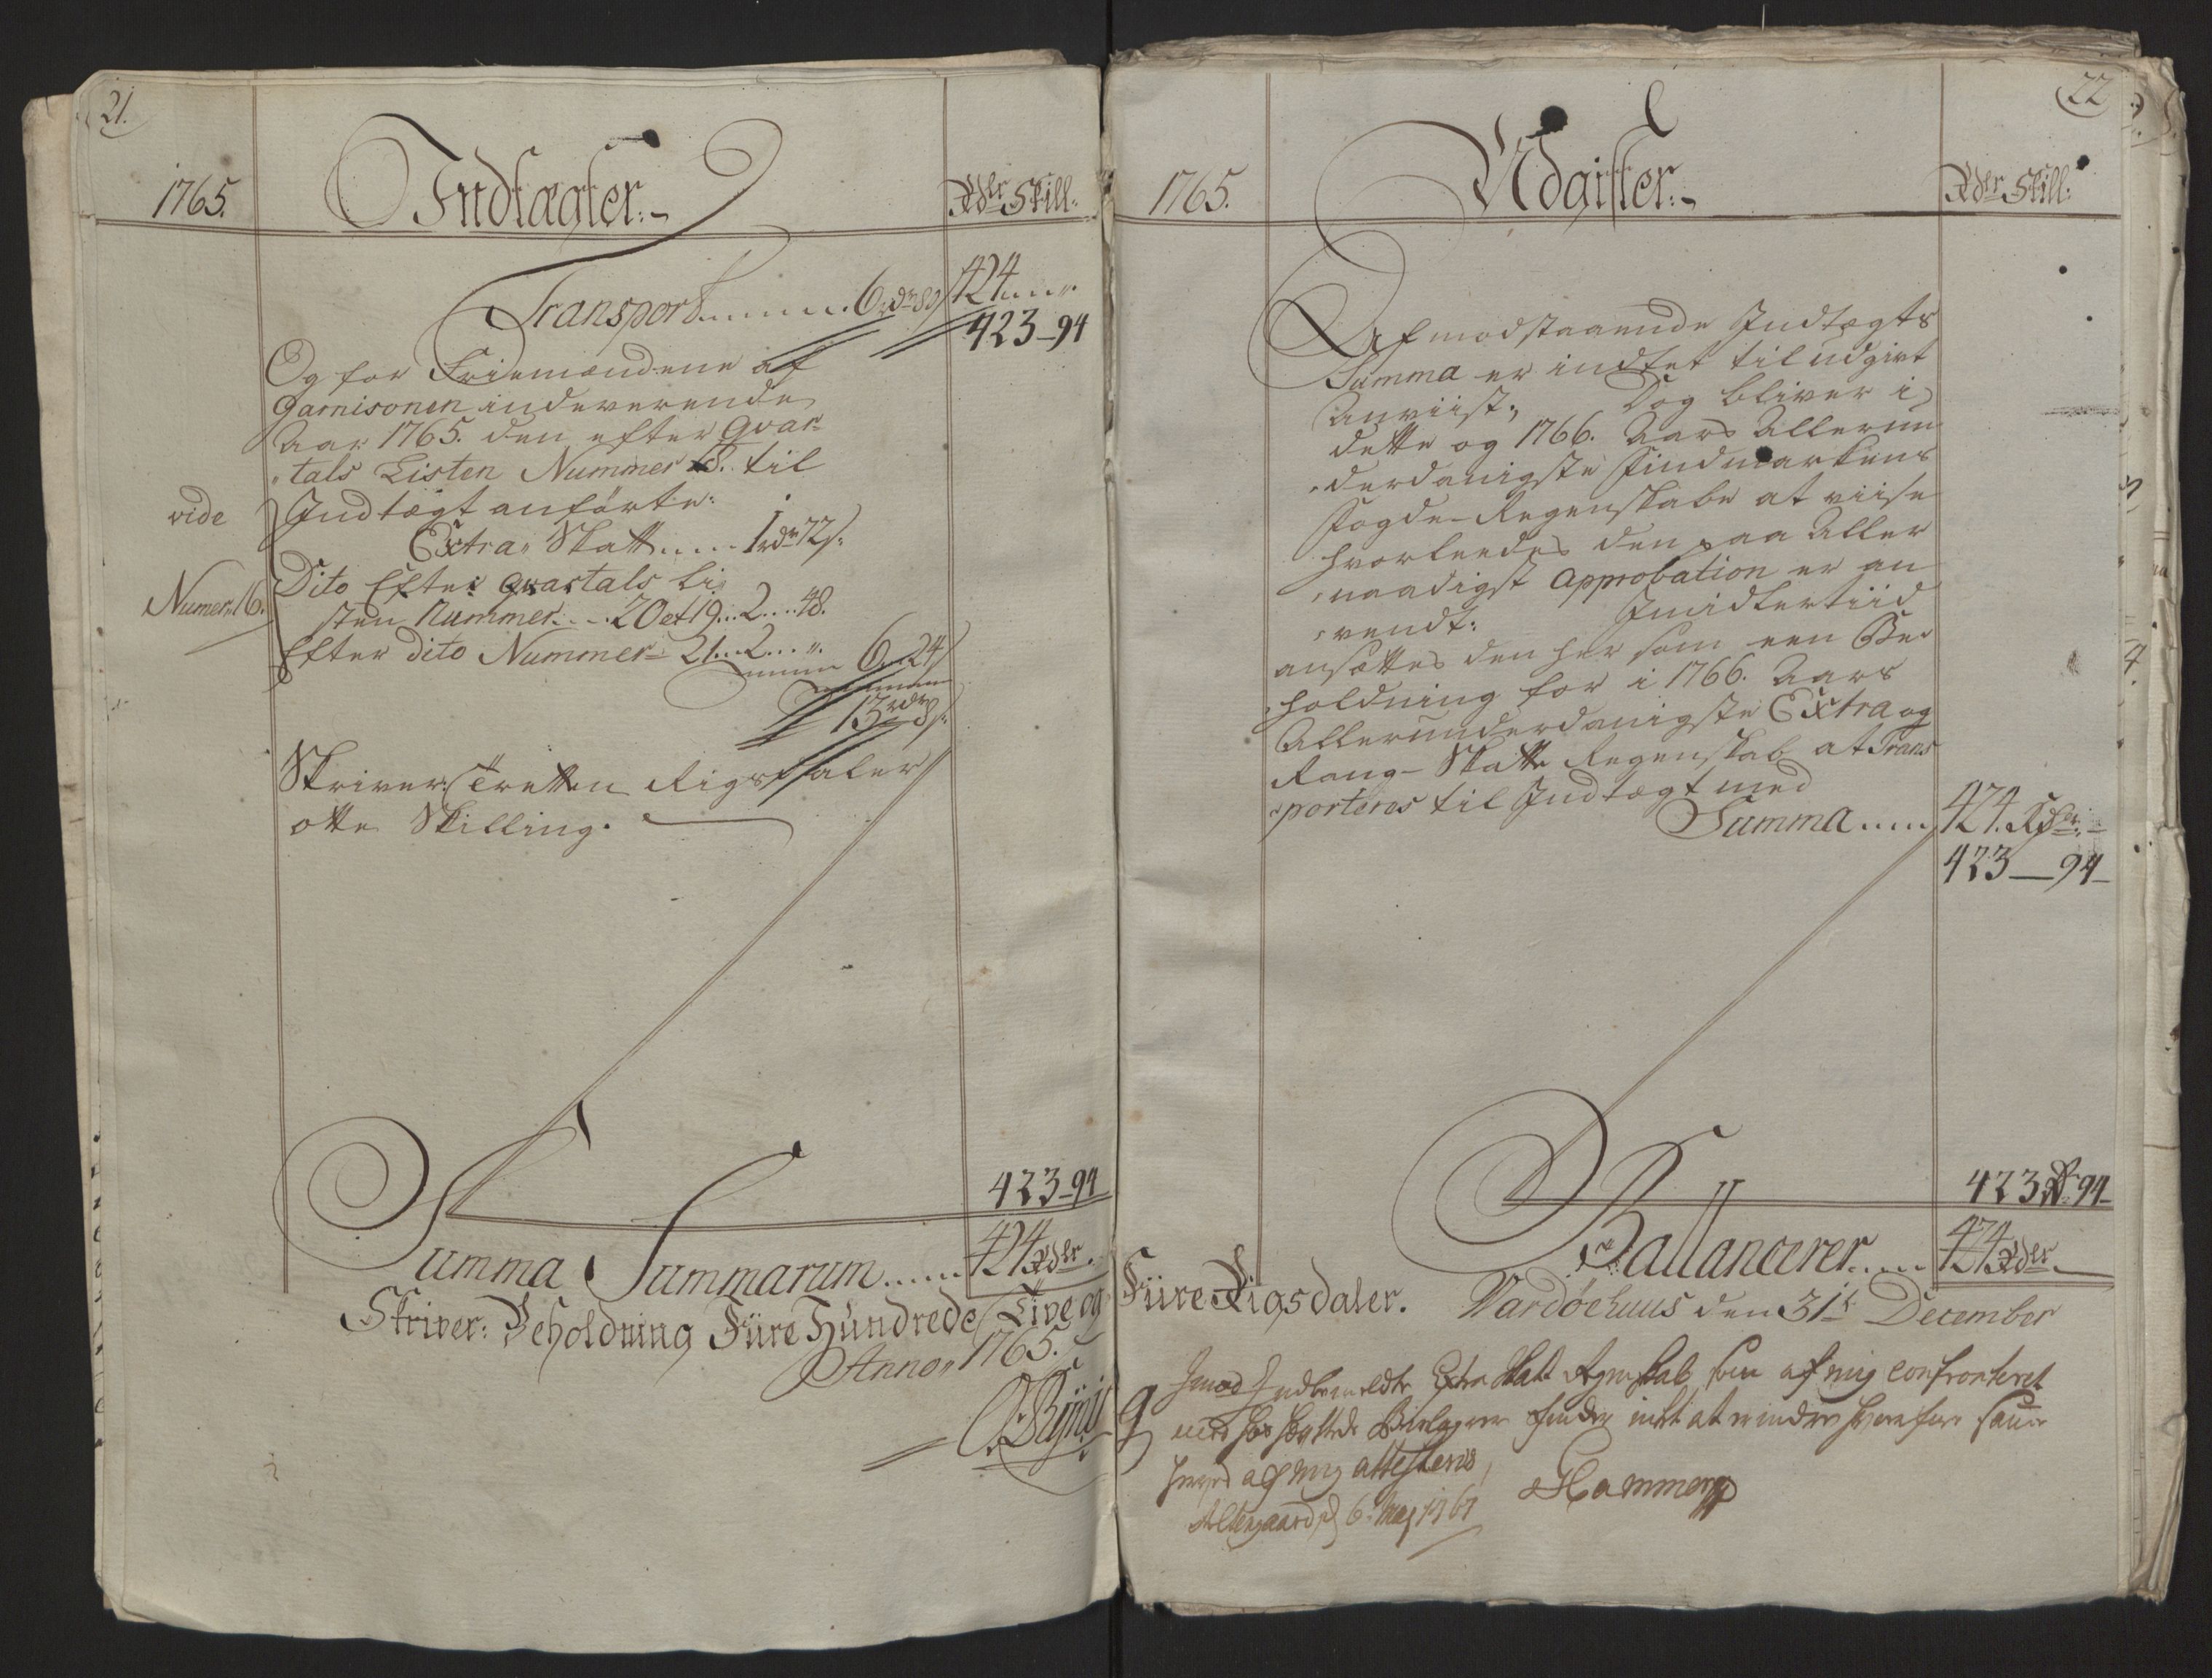 21.
1765.
Indtægter.
Rdlr Skill:
Transport ........ 6 rdr 80 s
424 .... ".
423 - 94
Og for Friemændene af
Garnisonen indeværende
Aar 1765. den efter Qvar-
tals Listen Nummer 18. til
Indtægt anførte:
vide
Extra Skatt ..... 1 rdr 72 s:
Dito Efter Qvartals Li-
Numer: 16.
sten Nummer .... 20 et 19 ... 2 .... 48.
Efter dito Nummer = 21 ... 2 .... ".
6 .. 24 s
13 rdr 8 s:
Skriver: Tretten Rigsdaler
otte Skilling.
423 - 94
Summa Summarum ...... 424 Rdlr.
Skriver: Beholdning Fiire Hundrede Tive og
Anno 1765.
22
1765.
Udgifter.
Rdlr Skill:
Af modstaaende Indtægts
Summa er indtet til udgivt
Anviist, Dog bliver i
dette og 1766. Aars Allerun-
derdanigste Findmarkens
Fogde-Regenskabe at viise
hvorleedes den paa Aller-
naadigst Approbation er an-
vendt: Imidlertiid
ansættes den her som een Be-
holdning for i 1766. Aars
Allerunderdanigste Extra og
Rang-Skatte Regenskab at Trans-
porteres til Indtægt med
Summa ..... 424. Rdlr: -
423 - 94 -
423 Rdr 94 -
Ballancerer ..... 424 Rdlr
Fiire Rigsdaler. Wardøehuus den 31te December
Indbemeldte Extra Skatt Regenskab som af mig confronteret
med hos hæftede Bielager finder intet at erindre hvorfore saa
herved af mig attesteris,
Altengaard d 6 May 1767
Hammer